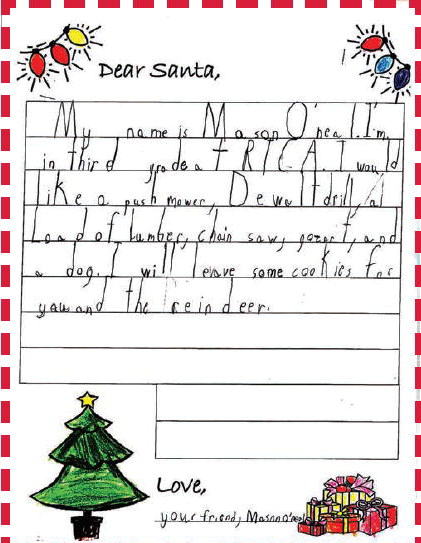 Dear Santa,
My name is Mason O'heal. I'm
in third grade at RICA. I would
like a push mower, Dewalt drill, a
Load of lumber, chain saw, and
a dog. I will leave some cookies for
you and the reindeer.
Love,
your friend, Mason O'heal